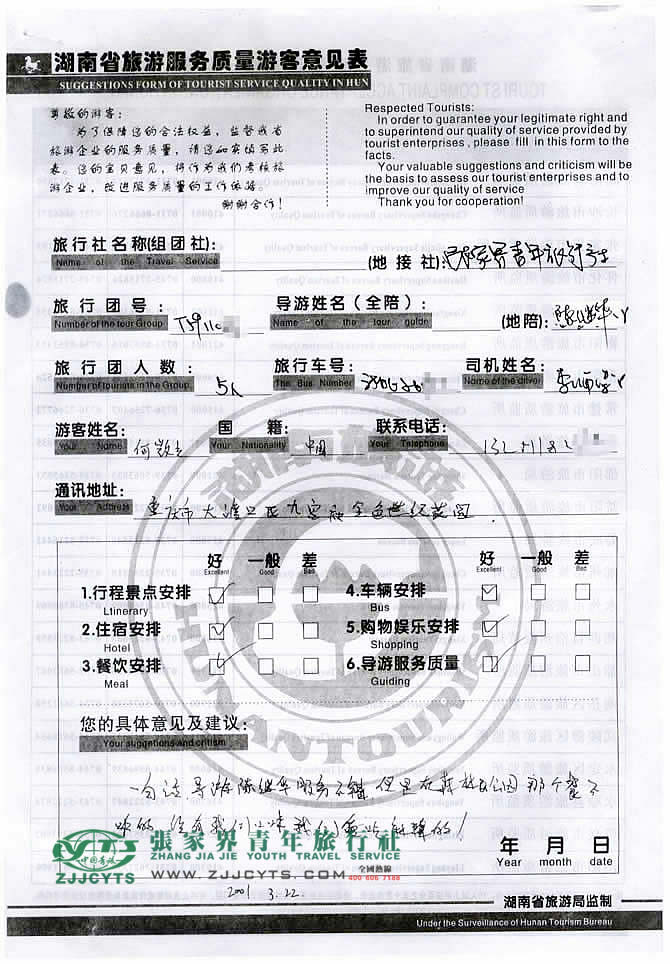 湖南省旅游服务质量游客意见表
SUGGESTIONS FORM OF TOURIST SERVICE QUALITY IN HUN
尊敬的游客：
为了保障您的合法权益，监督我省
旅游企业的服务质量，请您如实填写此
表。您的宝贵意见，将作为我们考核旅
游企业，改进服务质量的工作依据。
谢谢合作！
Respected Tourists:
In order to guarantee your legitimate right and
to superintend our quality of service provided by
tourist enterprises , please fill in this form to the
facts.
Your valuable suggestions and criticism will be
the basis to assess our tourist enterprises and to
improve our quality of service
Thank you for cooperation!
旅行社名称(组团社):
Name of the Travel Service
(地接社): 张家界青年旅行社
旅行团号：
Number of the tour Group
导游姓名（全陪）：
Name of the tour guide
(地陪): 陈继华
旅行团人数：
Number of tourists in the Group 5人
旅行车号：
The Bus Number
司机姓名：
Name of the driver
游客姓名:
Your Name
国籍:
Your Nationality 中国
联系电话:
Your Telephone
通讯地址:
Your Address 重庆市大渡口区九宫庙金色世纪花园
好 一般 差 好 一般 差
Excellent Good Bad Excellent Good Bad
1.行程景点安排 4.车辆安排
Ltinerary Bus
2.住宿安排 5.购物娱乐安排
Hotel Shopping
3.餐饮安排 6.导游服务质量
Meal Guiding
湖南旅游
HUNAN TOURISM
您的具体意见及建议:
Your suggetions and critism
导游陈继华服务不错，但是在森林公园那个餐
我们
張家界青年旅行社
ZHANG JIA JIE YOUTH TRAVEL SERVICE
中国青旅
ZJJCYTS
WWW.ZJJCYTS.COM
全國熱線
400 606 7188
年 月 日
Year month date
2001 3.22.
湖南省旅游局监制
Under the Surveillance of Hunan Tourism Bureau